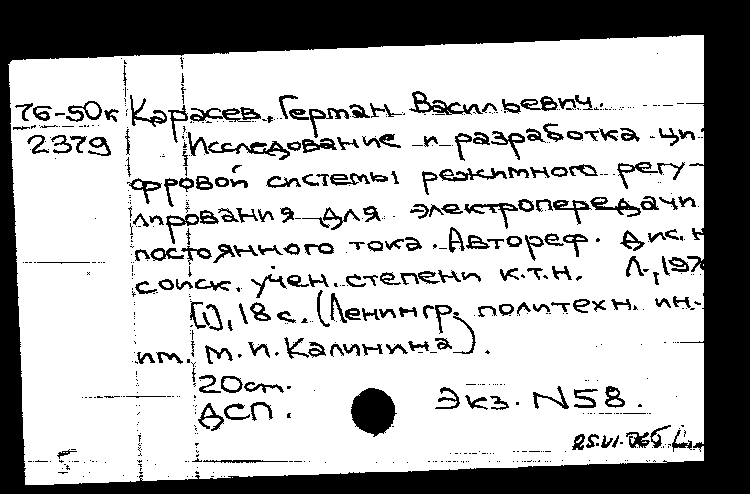 76-50к Карасев, Герман Васильевич.
2379 Исследование и разработка ци-
фровой системы режимного регу-
лирования для электропередачи
постоянного тока. Автореф. дис. н
соиск. учен. степени к.т.н. Л., 197
[1], 18 с. (Ленингр. политехн. ин-
им. М.И. Калинина).
20 см.
ДСП. Экз. N58.
5